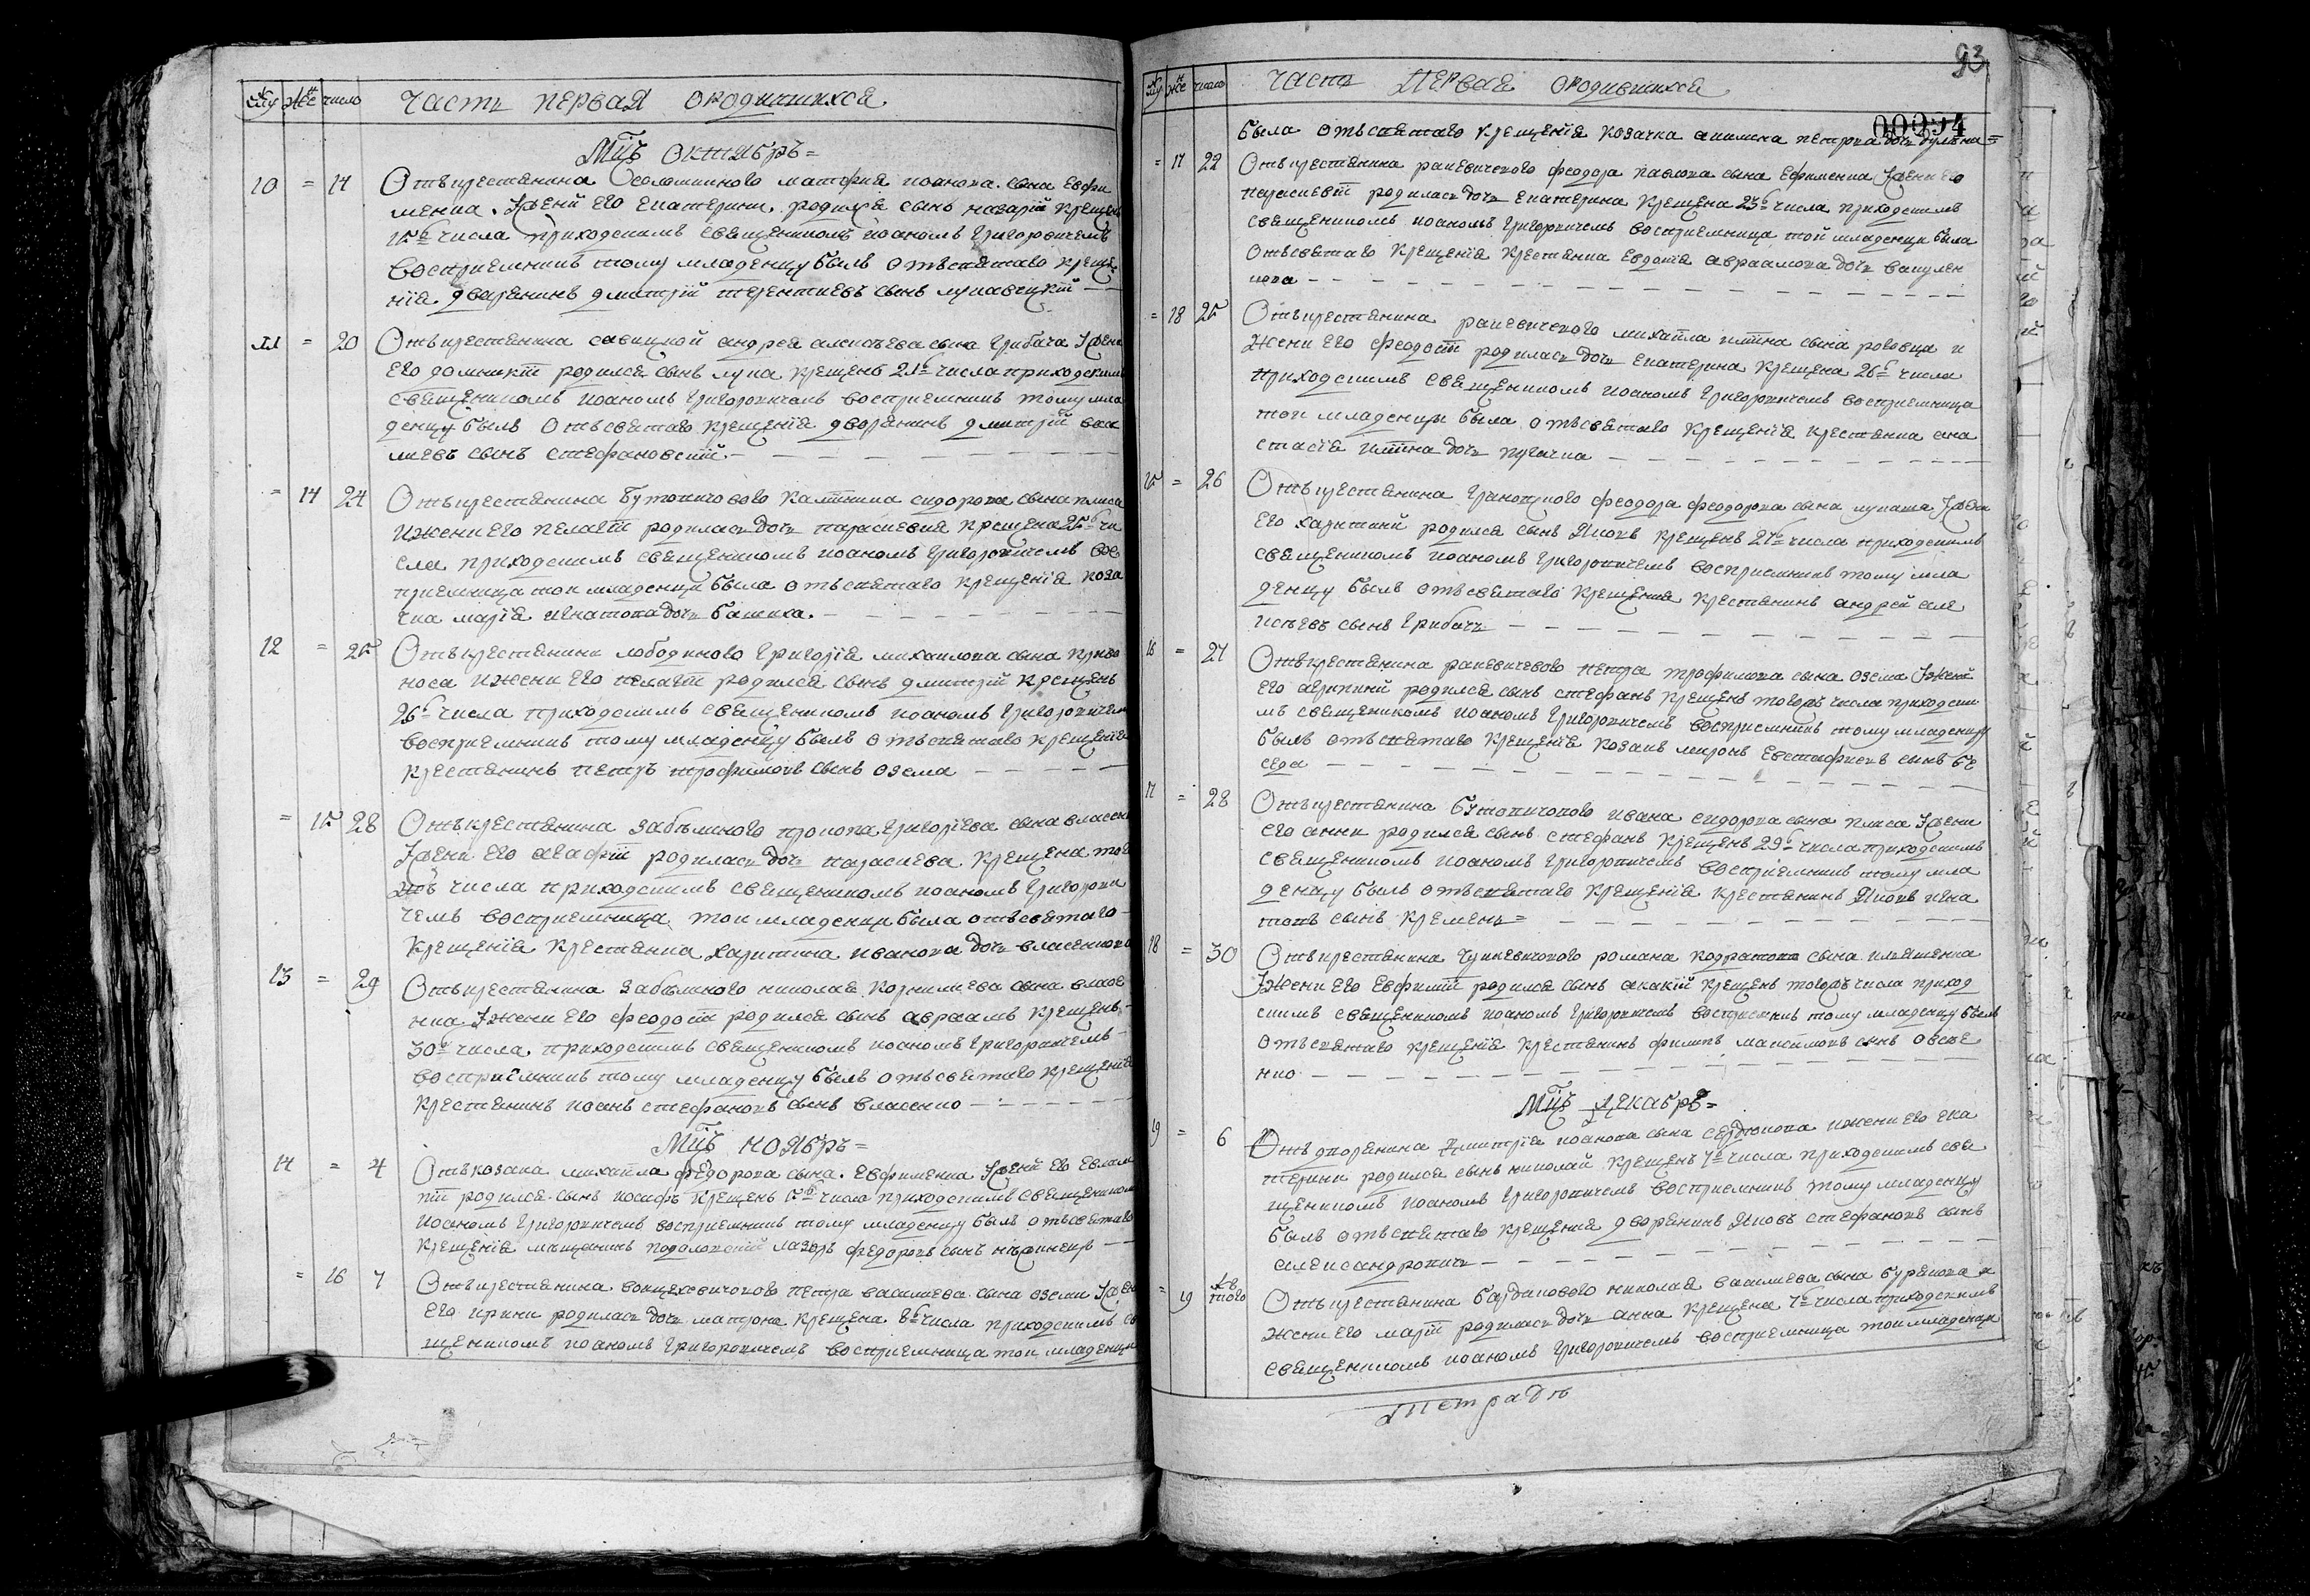 муж жен число Часть первая ородившихся
Мцъ октябрь=
10 = 14 Отъкрестянина Соломиного матфея иоанова сына Евфи
менка. Iжени его екатерини, родился сынъ назарiй крещенъ
15го числа приходскимъ священикомъ иоаномъ григоровичемъ
восприемникъ тому младенцу былъ отъсвятаго креще
нiя дворянинъ дмитрiй терентиевъ сынъ
11 = 20 Отъкрестянина савицкой андрея алексѣева сына грибача Iжени
его домникiи родился сынъ лука крещенъ 21го числа приходскимъ
священикомъ иоаномъ григоровичемъ восприемникъ тому мла
денцу былъ отъсвятаго крещенiя дворянинъ дмитрiй васи
лиевъ сынъ стефановскiй
= 14 24 Отъкрестянина Бутовичового сидорова сына плиса
ижени его пелагеи родилась дочь параскевия крещена 25го чи
сла приходскимъ священикомъ иоаномъ григоровичемъ вос
приемница тои младенци была отъсвятаго крещенiя коза
чка марiя игнатова дочь
12 = 25 Отъкрестянини лободиного григорiя михаилова сына криво
носа ижени его пелагеи родился сынъ дмитрiй крещенъ
26го числа приходскимъ священикомъ иоаномъ григоровичемъ
восприемникъ тому младенцу былъ отъсвятаго крещенiя
крестянинъ петръ трофимовъ сынъ озема
= 15 28 Откъкрестянина забѣлиного прокопа григорiева сына власенк
Iжени его агафiи родилась дочь параскева крещена того
жъ числа приходскимъ священикомъ иоаномъ григорови
чемъ восприемница тои младенци была отъсвятаго
крещенiя крестянка харитина иванова дочь власенкова
13 = 29 Отъкрестянина забѣлиного николая корнилиева сына власе
нка Iжени его феодотiи родился сынъ авраамъ крещенъ
30го числа приходскимъ священикомъ иоаномъ григоровичемъ
восприемникъ тому младенцу былъ отъсвятаго крещенiя
крестянинъ иоанъ стефановъ сынъ власенко
Мцъ ноябрь=
14 = 4 Отъкозака михайла федорова сына. Евфименка Iжени его евлам
пiи родился сынъ иосифъ крещенъ 5го числа приходскимъ священикомъ
иоаномъ григоровичемъ восприемникъ тому младенцу былъ отъсвятаго
крещенiя мѣщанинъ лазарь федоровъ сынъ
= 16 7 Отъкрестянина войцеховичового петра василиева сына оземи Iжени
его ирини родилась дочь матрона крещена 8го числа приходскимъ свя
щеникомъ иоаномъ григоровичемъ восприемница тои младенци
93
муж жен число Часть Первая ородившихся
00094
была отъсвятаго крещенiя козачка акилина петрова дочь
= 17 22 Отъкрестянина ракевичового феодора павлова сына Ефименка Iжени его
параскевiи родилась дочь екатерина крещена 23го числа приходскимъ
священикомъ иоаномъ григоровичемъ восприемница той младенци была
отъсвятаго крещенiя крестянка евдокiя авраамова дочь вакулен
кова
= 18 25 Отъкрестянина ракевичового михайла илiина сына роговца и
жени его феодотiи родилась дочь екатерина крещена 26го числа
приходскимъ священикомъ иоаномъ григоровичемъ восприемница
тои младенци была отъсвятаго крещенiя крестянка ана
стасiя илiина дочь пугачка
15 = 26 Отъкрестянина феодора феодорова сына лупаша Iжени
его харитини родился сынъ Яковъ крещенъ 27го числа приходскимъ
священикомъ иоаномъ григоровичемъ восприемникъ тому мла
денцу былъ отъсвятаго крещения крестянинъ андрей але
ксѣевъ сынъ грибачъ
16 = 27 Отъкрестянина ракевичевого петра трофимова сына озема Iжени
его агрипини родился сынъ стефанъ крещенъ тогожъ числа приходски
мъ священикомъ иоаномъ григоровичемъ восприемникъ тому младенцу
былъ отъсвятаго крещенiя козакъ миронъ Евстафиевъ сынъ бе
седа
17 = 28 Отъкрестянина Бутовичового ивана сидорова сына плиса Iжени
его анни родился сынъ стефанъ крещенъ 29го числа приходскимъ
священикомъ иоаномъ григоровичемъ восприемникъ тому мла
денцу былъ отъсвятаго крещенiя крестянинъ Яковъ игна
товъ сынъ кремень=
18 = 30 Отъкрестянина романа кодратова сына иляшенка
Iжени его Евфимiи родился сынъ акакiй крещенъ тогожъ числа приход
скимъ священикомъ иоаномъ григоровичемъ восприемникъ тому младенцу былъ
отъсвятаго крещенiя крестянинъ филипъ максимовъ сынъ овсѣе
нко
Мцъ декабрь=
19 = 6 Отъдворянина дмитрiя иоанова сына сердюкова ижени его ека
терини родился сынъ николай крещенъ 7го числа приходскимъ свя
щеникомъ иоаномъ григоровичемъ восприемникъ тому младенцу
былъ отъсвятаго крещения дворянинъ Яковъ стефановъ сынъ
александровичъ
= 19 того Отъкрестянина бардаковового николая василиева сына буренока и
жени его марiи родилась дочь анна крещена 7го числа приходскимъ
священикомъ иоаномъ григоровичемъ восприемница тои младенци
Тетрадь